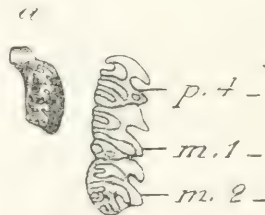 a
p. 4
m. 1
m. 2